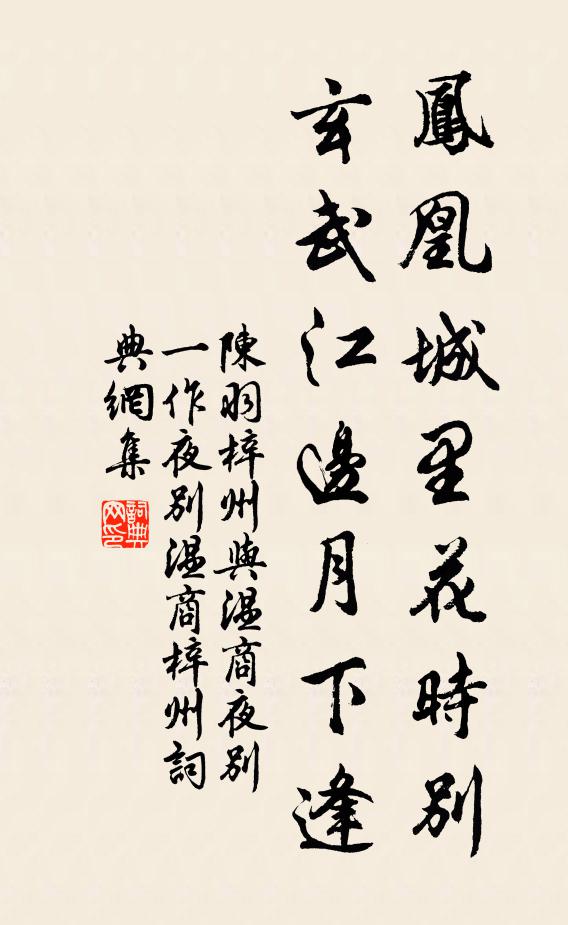 鳳凰城里花時別
玄武江邊月下逢
陳羽梓州與溫商夜別
一作夜別溫商梓州詞
典網集
詞典网印